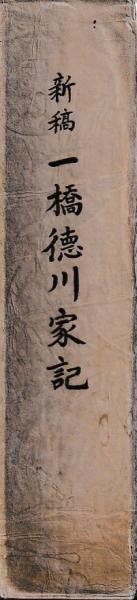 新稿 一橋德川家記